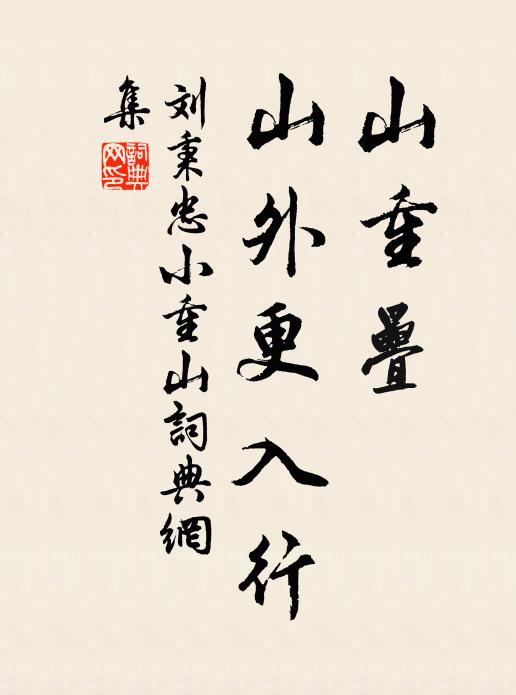 山重疊
山外更入行
刘秉忠小重山詞典網
集
詞典
网印